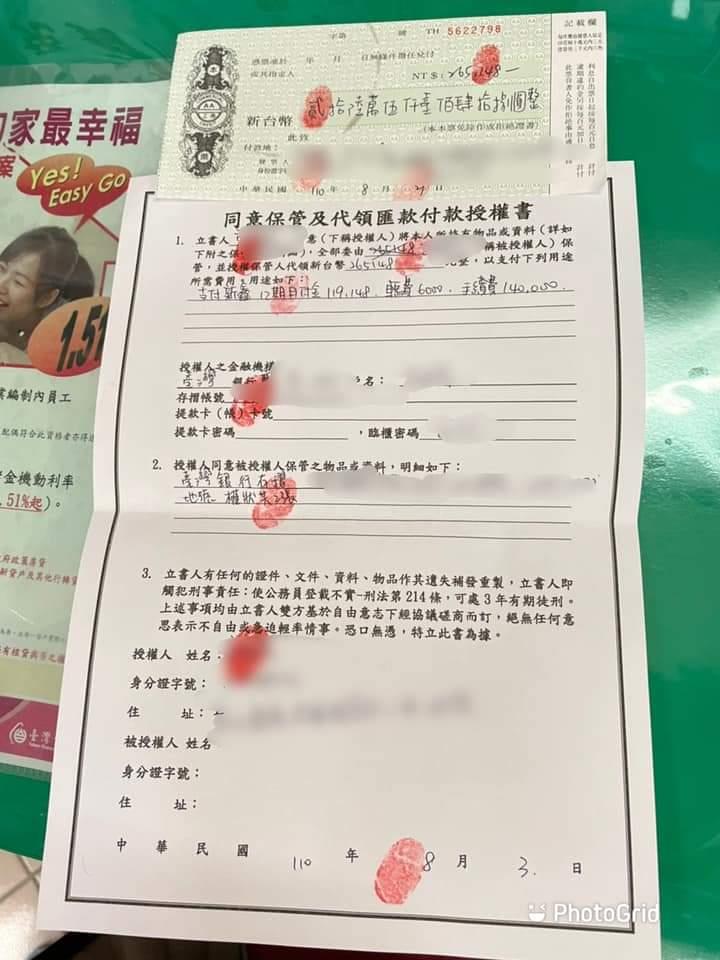 字第 號 TH 5622798
憑票准於 年 月 日無條件擔任兌付
或其指定人
NT$: 265,148—
新台幣 貳拾陸萬伍仟壹佰肆拾捌圓整
此致 (本本票免除作成拒絕證書)
付款地:
發票人
身份證字號
中華民國 110 年 8 月 日
記載欄
家最幸福
案
Yes!
Easy Go
1.51
業編制內員工
配偶符合此資格者亦得
資金機動利率
.51%起)。
同意保管及代領匯款付款授權書
1. 立書人 意(下稱授權人)將本人所持有物品或資料(詳如
下附之保 全部委由 稱被授權人)保
管,並授權保管人代領新台幣 265148 元整,以支付下列用途
所需費用:用途如下:
支付新鑫 12期自付金 119,148. 6000. 手續費 140,000.
授權人之金融機構
臺灣 銀行 名:
存摺帳號
提款卡(帳)卡號
提款卡密碼 ,臨櫃密碼
2. 授權人同意被授權人保管之物品或資料,明細如下:
臺灣銀行存摺
權狀共2張
3. 立書人有任何的證件、文件、資料、物品作其遺失補發重製,立書人即
觸犯刑事責任:使公務員登載不實-刑法第 214 條,可處 3 年有期徒刑。
上述事項均由立書人雙方基於自由意志下經協議磋商而訂,絕無任何意
思表示不自由或急迫輕率情事。恐口無憑,特立此書為據。
授權人 姓名:
身分證字號:
住 址:
被授權人 姓名
身分證字號:
住 址:
中 華 民 國 110 年 8 月 3. 日
臺灣
PhotoGrid